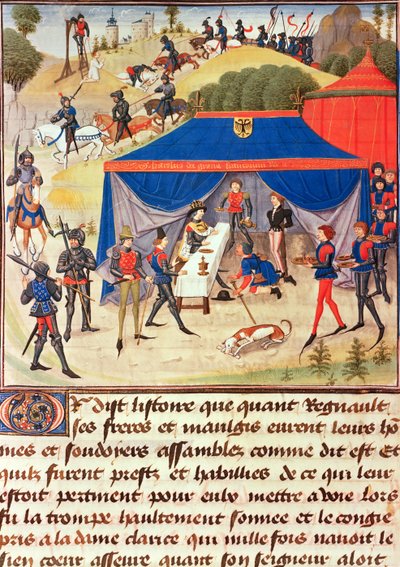 Or dist listoire que quant Regnault
ses freres et maulgis eurent leurs hom̄
mes et souldoyers assambles comme dit est Et
quilz furent prestz et habillies de ce qui leur
estoit pertinent pour eulx mettre a voie lors
fu la trompe haultement sonnee et le congie
pris a la dame clarice qui mille fois navoit le
sien coeur asseure quant son seigneur aloit